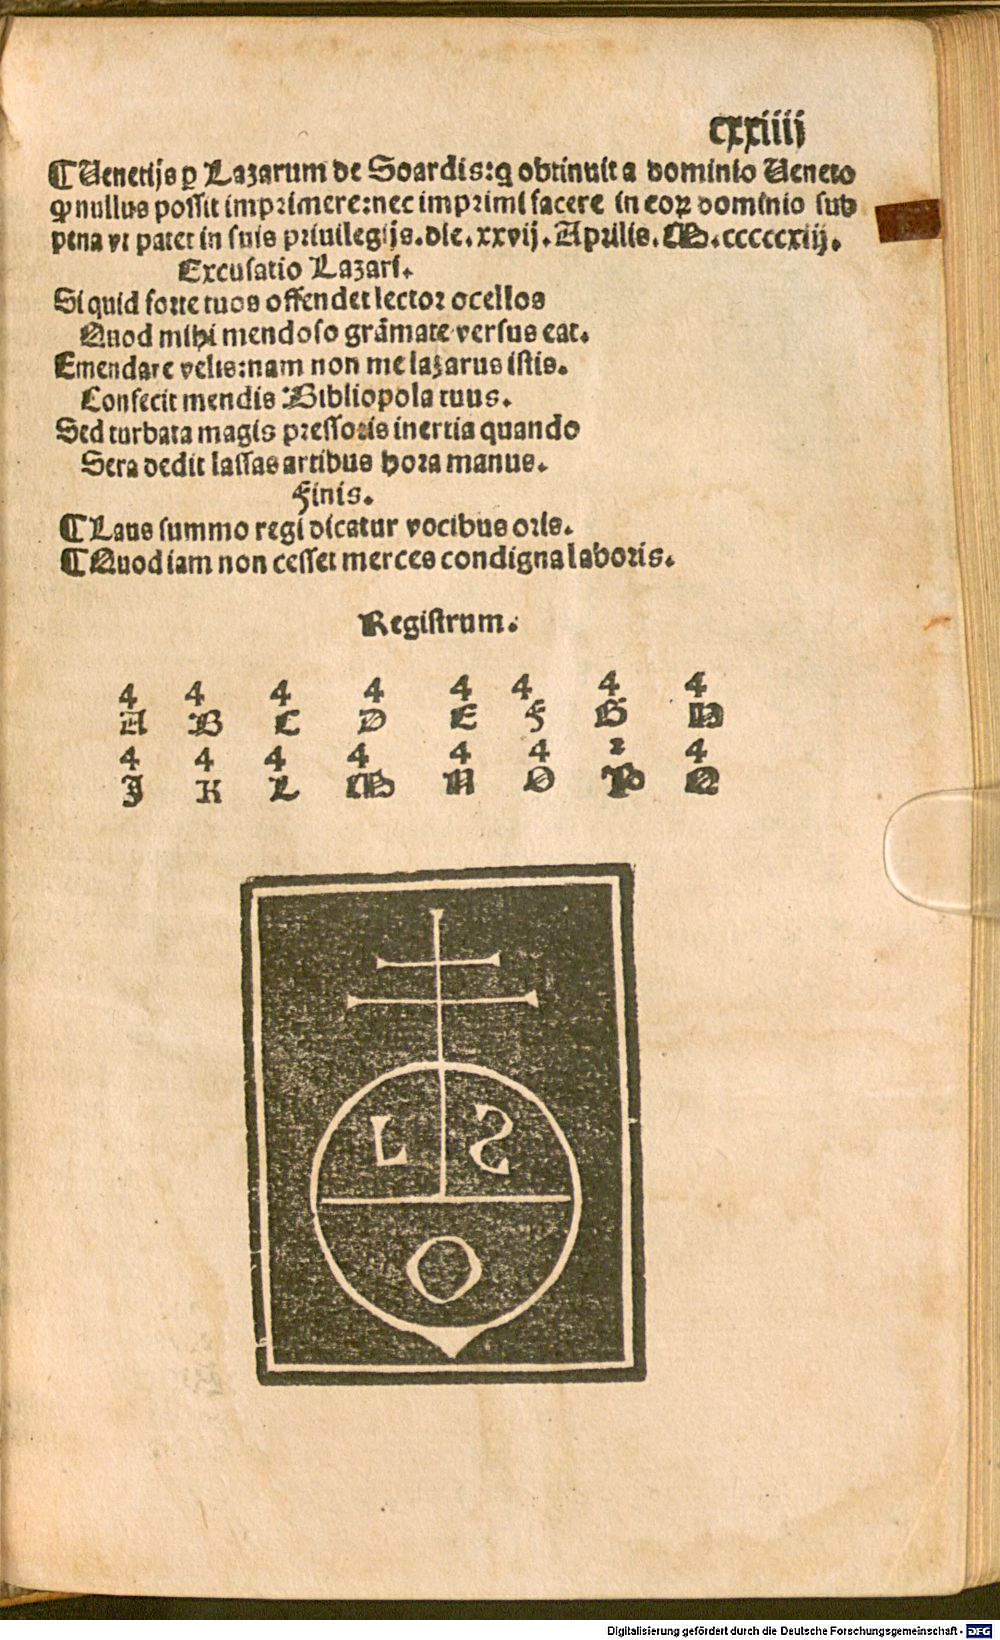 cxxiiij
¶ Uenetijs ꝑ Lazarum de Soardis: ꝗ obtinuit a dominio Ueneto
ꝙ nullus possit imprimere: nec imprimi facere in eoꝝ dominio sub
pena vt patet in suis priuilegijs. die. xxvij. Aprilis. M.ccccccxiij.
Excusatio Lazari.
Si quid forte tuos offendet lector ocellos
Quod mihi mendoso grãmate versus eat.
Emendare velis: nam non me lazarus istis.
Confecit mendis Bibliopola tuus.
Sed turbata magis pressoris inertia quando
Sera dedit lassas artibus hora manus.
Finis.
¶ Laus summo regi dicatur vocibus oris.
¶ Quod iam non cesset merces condigna laboris.
Registrum.
4 4 4 4 4 4 4 4
A B C D E F G H
4 4 4 4 4 4 2 4
J K L M N O P Q
L S
O
Digitalisierung gefördert durch die Deutsche Forschungsgemeinschaft - DFG